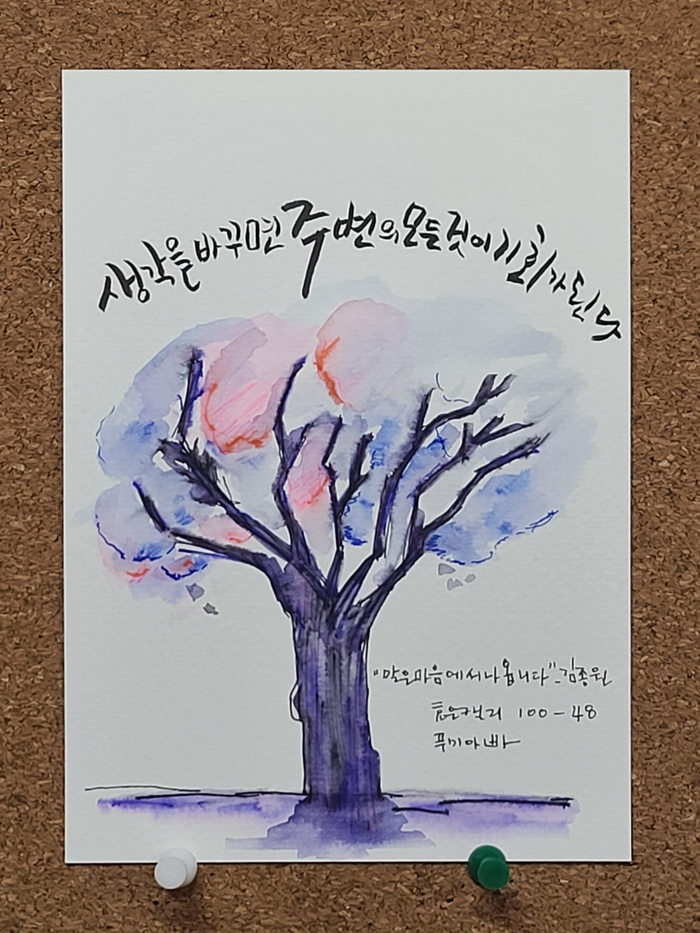 생각을 바꾸면 주변의 모든 것이 기회가 된다
"말은 마음에서 나옵니다"_김종원
틈은캘리 100-48
푸기아빠